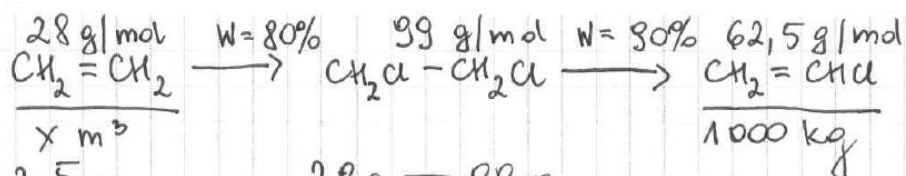 28 g/mol W=80% 99 g/mol W=90% 62,5 g/mol
CH₂=CH₂ → CH₂Cl-CH₂Cl → CH₂=CHCl
x m³ 1000 kg